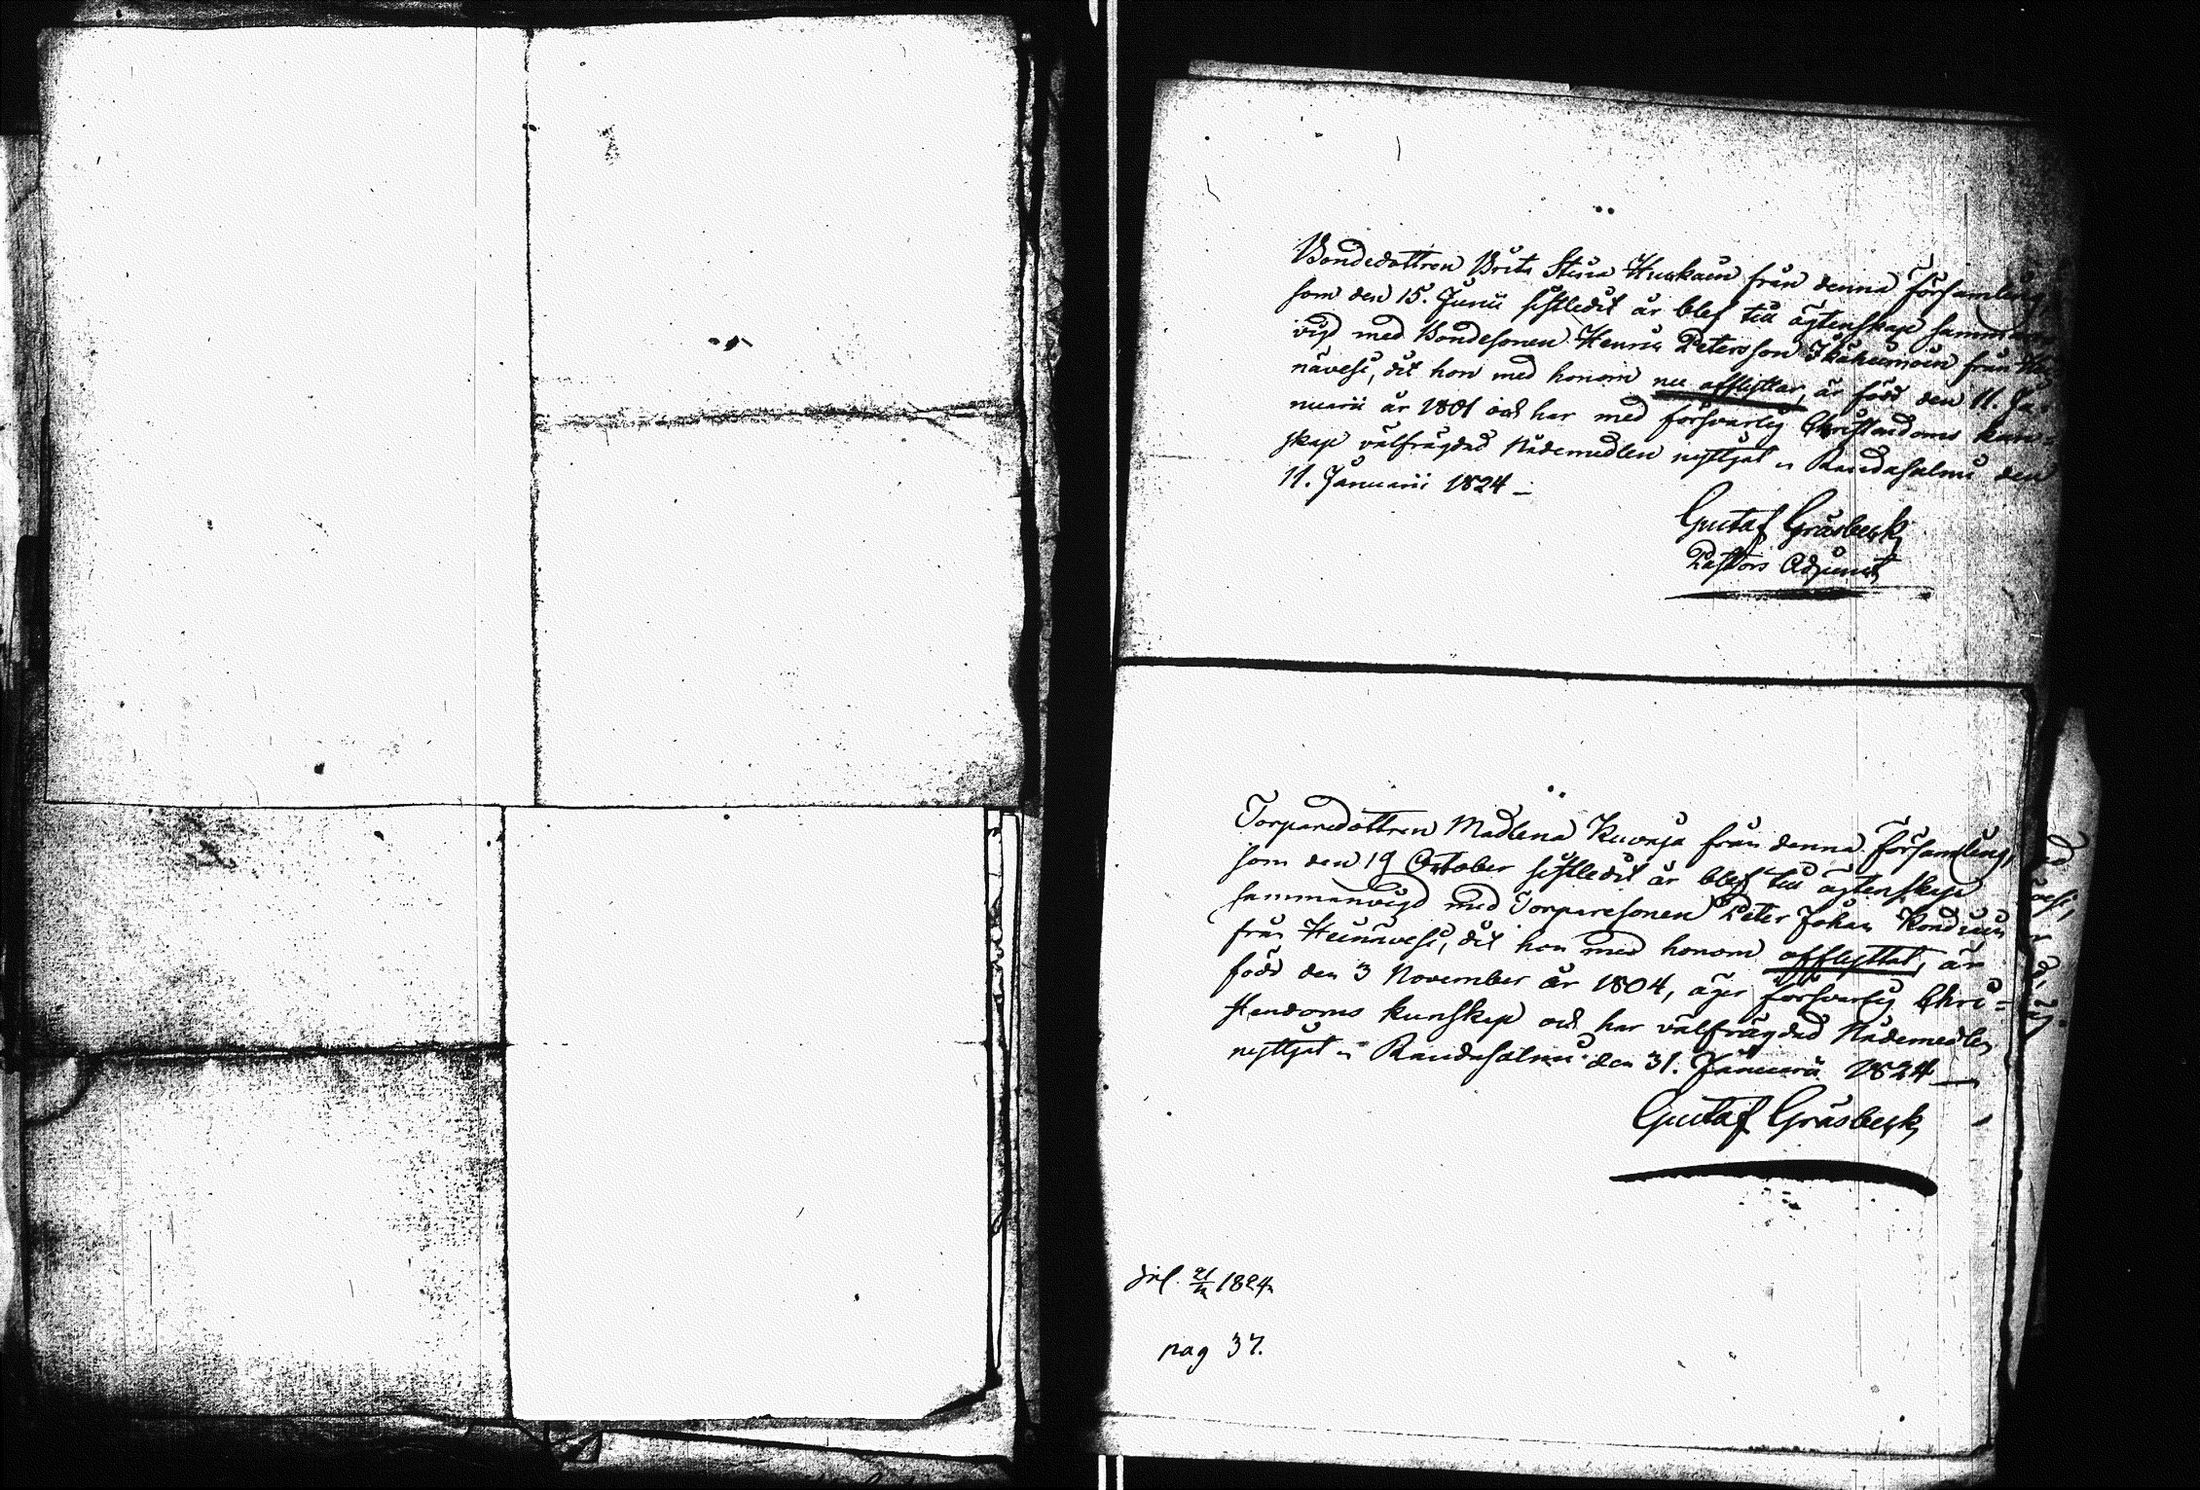 Bondedottren Brita Stina Huskain från denna Församling,
som den 15. Junii sistledit år blef till ägtenskap samman
vigd med Bondesonen Henric Petersson Ikäheimoin från Hei
nävesi, dit hon med honom nu afflyttar, är född den 11. Ja-
nuarii år 1801 och har med försvarlig Christendoms kun-
skap välfrägdad Nådemedlen nyttjat. Randasalmi den
11. Januarii 1824 –
Gustaf Gråsbeck,
Pastors Adjunct
Torparedottren Madlena Kuvaja från denna Församling,
som den 19 October sistledit år blef till ägtenskap
sammanvigd med Torparesonen Peter Johan
från Heinävesi, dit hon med honom afflyttat, är
född den 3 November år 1804, äger försvarlig Chri-
stendoms kunskap och har välfrägdad Nådemedlen
nyttjat. Randasalmi den 31. Januarii 1824 –
Gustaf Gråsbeck,
1824
pag 37.